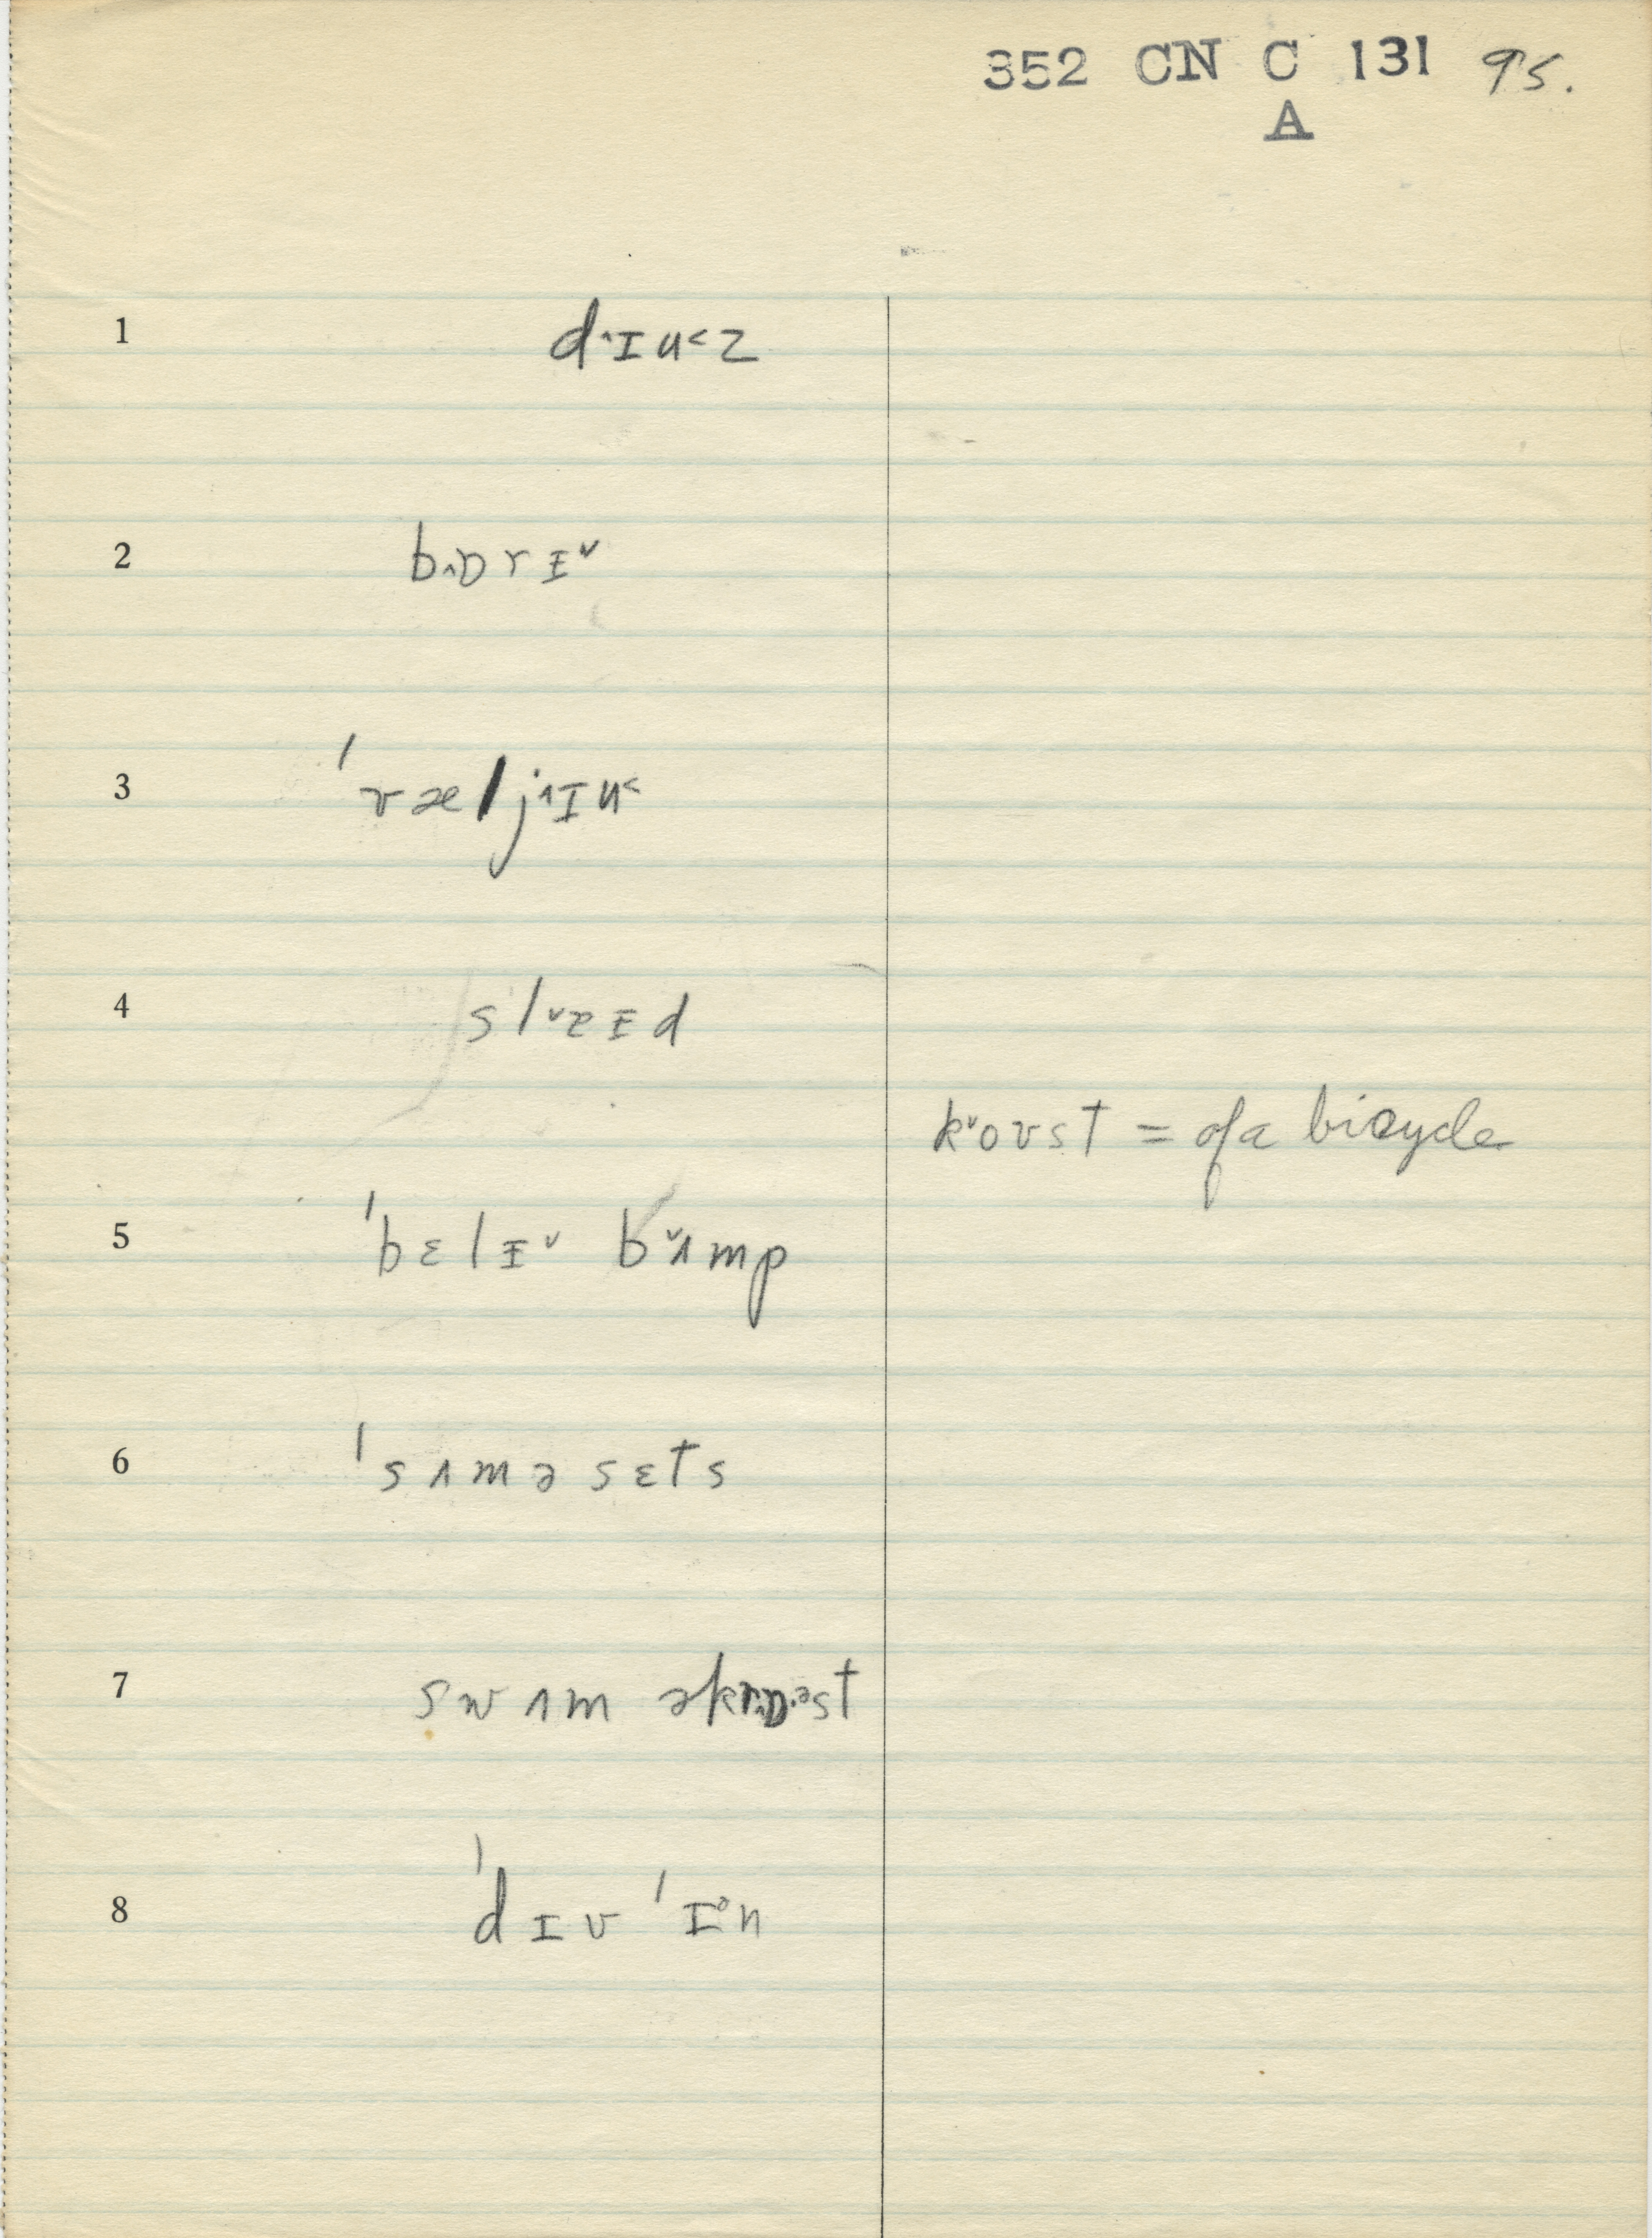 352 CN C 131 95.
A
1 d˄ɪu˂z
2 b˄ɒrɪ˅
3 ˈvælj˄ɪu˂
4 sl˅ɐɪd
k˅oʊst = of a bicycle
5 ˈbɛlɪ˅ b˅ʌmp
6 ˈsʌməsɛts
7 swʌm əkr˄ɒ·ᵊst
8 ˈdɪv ˈɪᵊn